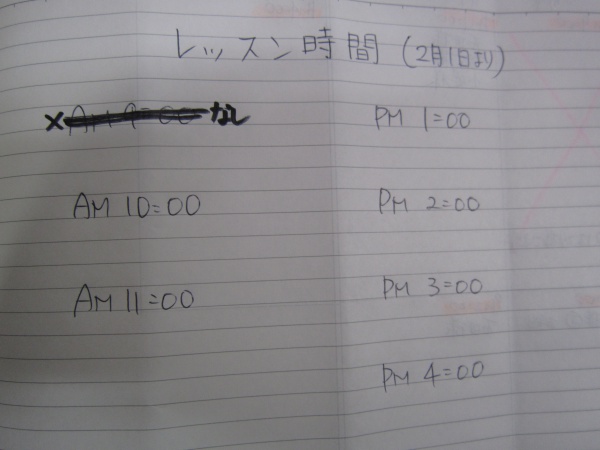 レッスン時間 (2月1日より)
× AM 9:00 なし
AM 10:00
AM 11:00
PM 1:00
PM 2:00
PM 3:00
PM 4:00